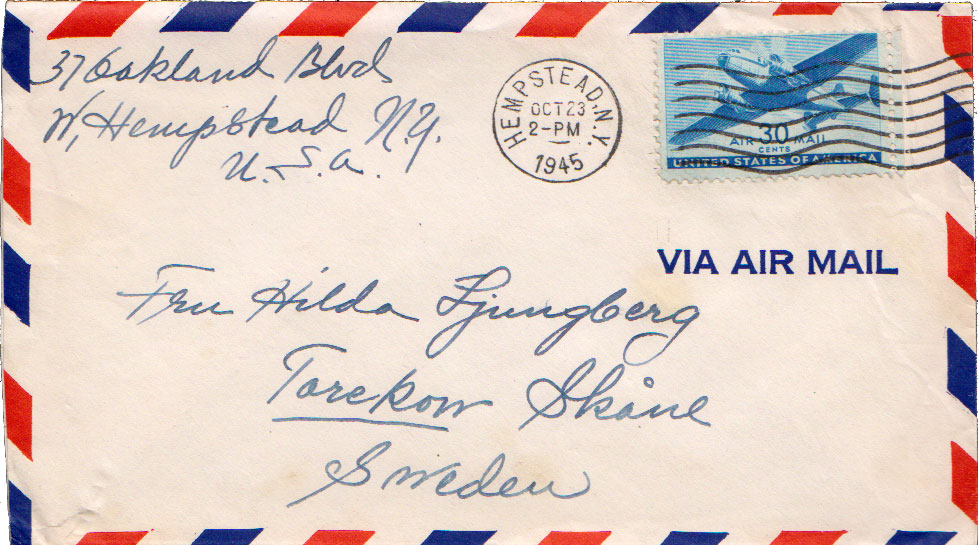 37 Oakland Blvd
W, Hempstead N.Y.
U.S.A.
HEMPSTEAD, N.Y.
OCT 23
2-PM
1945
30
AIR MAIL
CENTS
UNITED STATES OF AMERICA
VIA AIR MAIL
Fru Hilda Ljungberg
Torekow Skåne
Sweden